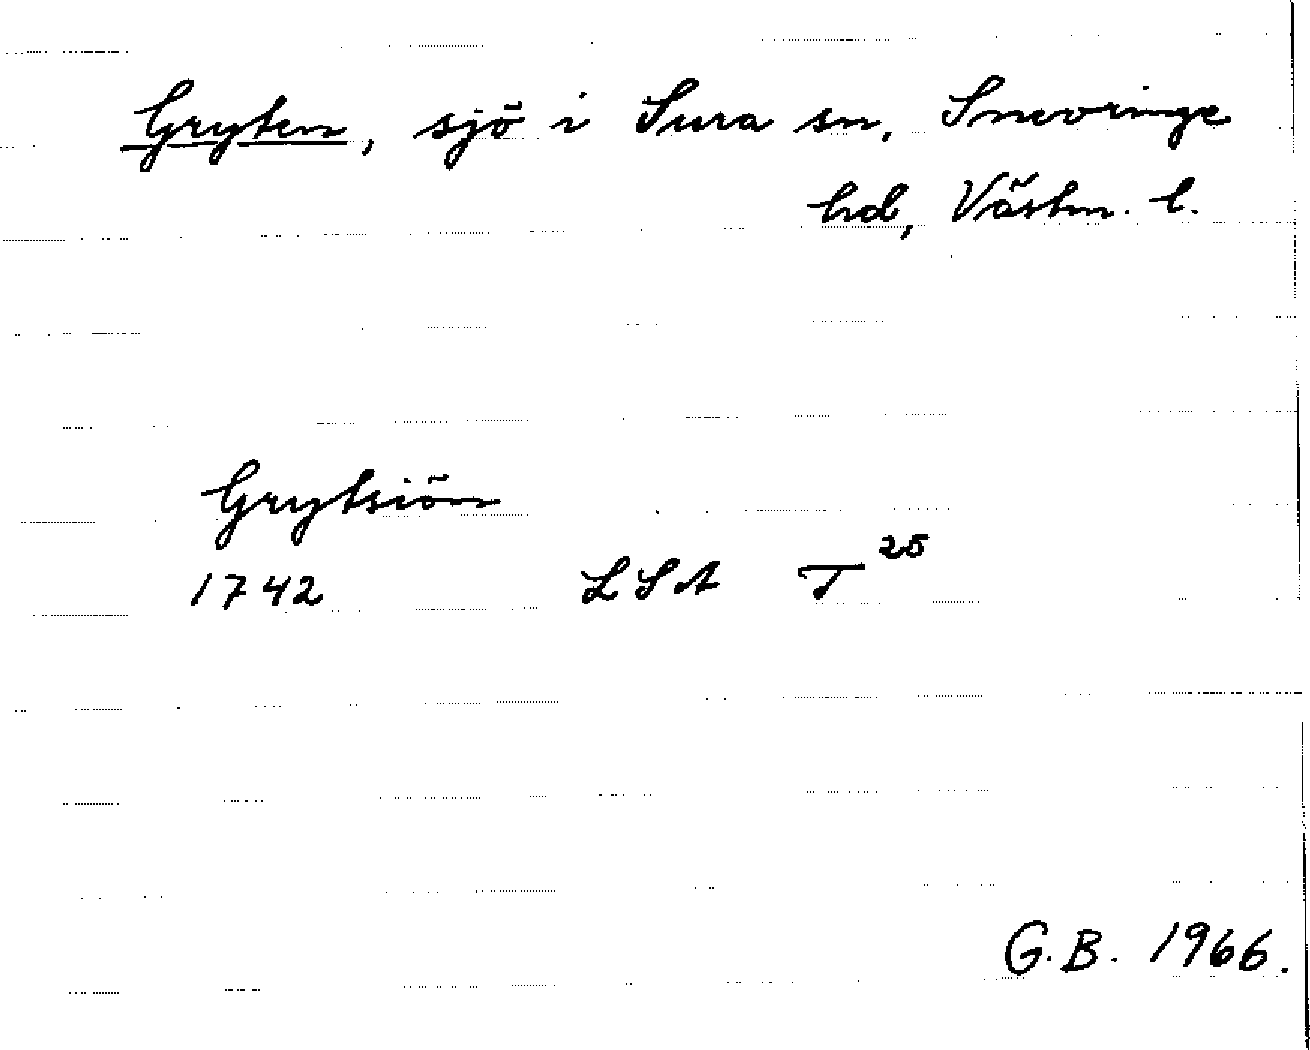 Gryten, sjö i Sura sn, Snevringe
hd, Västm. l.
Grytsiön
1742 LSA T 25
G.B. 1966.